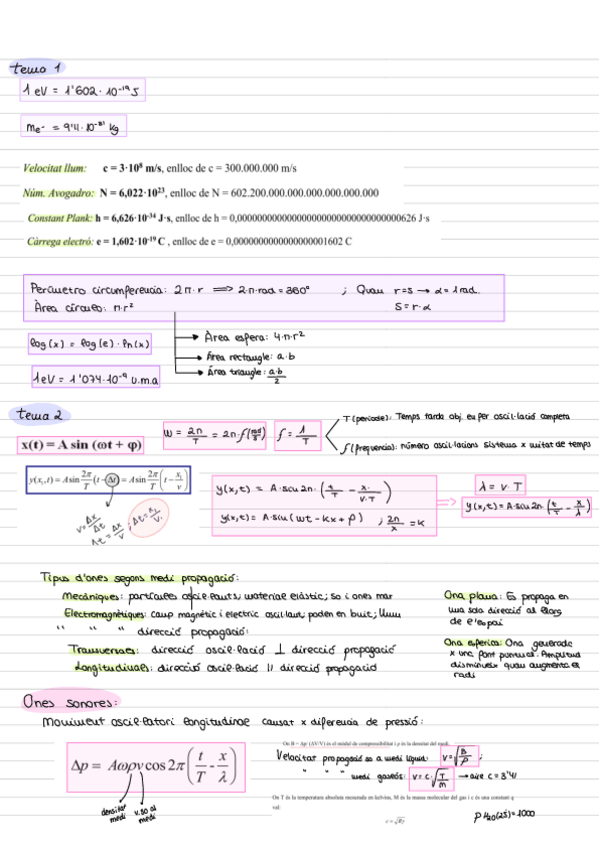 tema 1
1 eV = 1'602 · 10⁻¹⁹ J
me⁻ = 9'11 · 10⁻³¹ kg
Velocitat llum: c = 3·10⁸ m/s, enlloc de c = 300.000.000 m/s
Núm. Avogadro: N = 6,022·10²³, enlloc de N = 602.200.000.000.000.000.000.000
Constant Plank: h = 6,626·10⁻³⁴ J·s, enlloc de h = 0,000000000000000000000000000000000626 J·s
Càrrega electró: e = 1,602·10⁻¹⁹ C , enlloc de e = 0,0000000000000000001602 C
Perímetro circumferencia: 2π·r ⟹ 2·π·rad = 360° ; Quan r=s → α = 1 rad.
Àrea círculo: π·r² S = r·α
Àrea espera: 4·π·r²
log(x) = log(e) · ln(x)
Àrea rectangle: a·b
Àrea triangle: a·b/2
1eV = 1'074·10⁻⁹ u.m.a
tema 2
T (període): Temps tarda obj. en fer oscil·lació completa
x(t) = A sin (ωt + φ)
w = 2π/T = 2π·f (rad/s)
f = 1/T
f (frequencia): número oscil·lacions sistema x unitat de temps
y(x₁,t) = A sin 2π/T (t − Δt) = A sin 2π/T (t − x₁/v)
y(x,t) = A·sin 2π · (t/T − x/v·T)
λ = v·T
y(x,t) = A·sin 2π · (t/T − x/λ)
v = Δx/Δt
Δt = Δx/v
y(x,t) = A·sin (wt − kx + φ) ; 2π/λ = k
Tipus d'ones segons medi propagació:
Mecàniques: partícules oscil·lants; materiae elàstic; so i ones mar
Electromagnètiques: camp magnètic i electric oscil·lant; poden en buit; llum
" " " direcció propagació:
Transversals: direcció oscil·lació ⊥ direcció propagació
Longitudinals: direcció oscil·lació || direcció propagació
Ona plana: Es propaga en
una sola direcció al llarg
de l'espai
Ona esferica: Ona generada
x una font puntual. Amplitud
disminueix quan augmenta el
radi
Ones sonores:
Moviment oscil·latori longitudinal causat x diferencia de pressió:
On B = Δp/ (ΔV/V) és el mòdul de compressibilitat i ρ és la densitat del medi.
Δp = Aωρv cos 2π (t/T - x/λ)
Velocitat propagació so a medi líquid: v = √B/ρ ;
" " " medi gasós: v = c·√T/M → aire c = 3'41
densitat medi
v. so al medi
On T és la temperatura absoluta mesurada en kelvins, M és la massa molecular del gas i c és una constant q
val:
c = √Rγ
ρ H₂O (25) = 1000